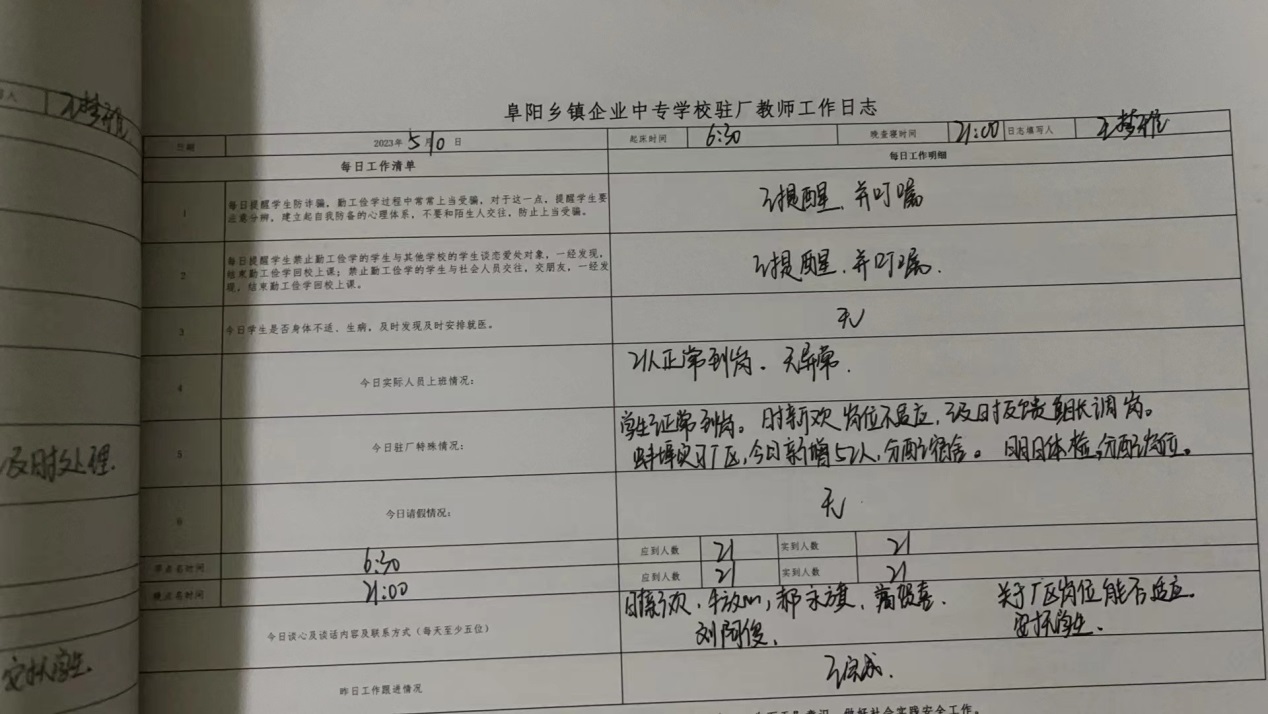 阜阳乡镇企业中专学校驻厂教师工作日志
日期 2023年5月10日 起床时间 6:30 晚查寝时间 21:00 日志填写人 王梦雅
每日工作清单 每日工作明细
1 每日提醒学生防诈骗，勤工俭学过程中常常上当受骗，对于这一点，提醒学生要
注意分辨，建立起自我防备的心理体系，不要和陌生人交往，防止上当受骗。
已提醒，并叮嘱
2 每日提醒学生禁止勤工俭学的学生与其他学校的学生谈恋爱处对象，一经发现，
结束勤工俭学回校上课；禁止勤工俭学的学生与社会人员交往，交朋友，一经发
现，结束勤工俭学回校上课。
已提醒，并叮嘱．
3 今日学生是否身体不适、生病，及时发现及时安排就医。 无
4 今日实际人员上班情况： 21人正常到岗．无异常．
5 今日驻厂特殊情况：
学生正常到岗。 新欢岗位不适应，已及时反馈 组长调岗。
厂区，今日新增52人，分配宿舍。 明日体检，分配岗位。
6 今日请假情况： 无
早点名时间 6:30 应到人数 21 实到人数 21
晚点名时间 21:00 应到人数 21 实到人数 21
今日谈心及谈话内容及联系方式（每天至少五位）
关于厂区岗位能否适应．
刘阿俊． 安抚学生．
昨日工作跟进情况 已完成．
及时处理．
安抚学生．
做好社会实践安全工作。